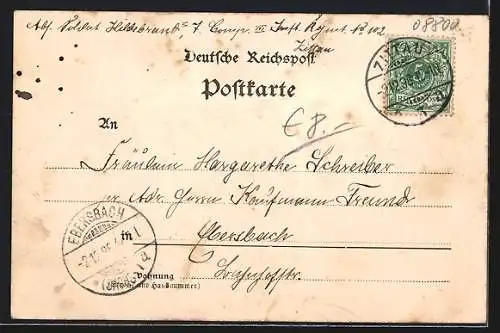 Abs. Soldat Hildebrandt 7. Comp. III Inft. Rgmt. No 102
Zittau
08800
ZITTAU
Deutsche Reichspost
Postkarte
€ 8.-
An
Fräulein Margarethe Schreiber
Adr. Herrn Kaufmann Freund
in Ebersbach
EBERSBACH
Bahnhofstr.
Wohnung
(Straße und Hausnummer)